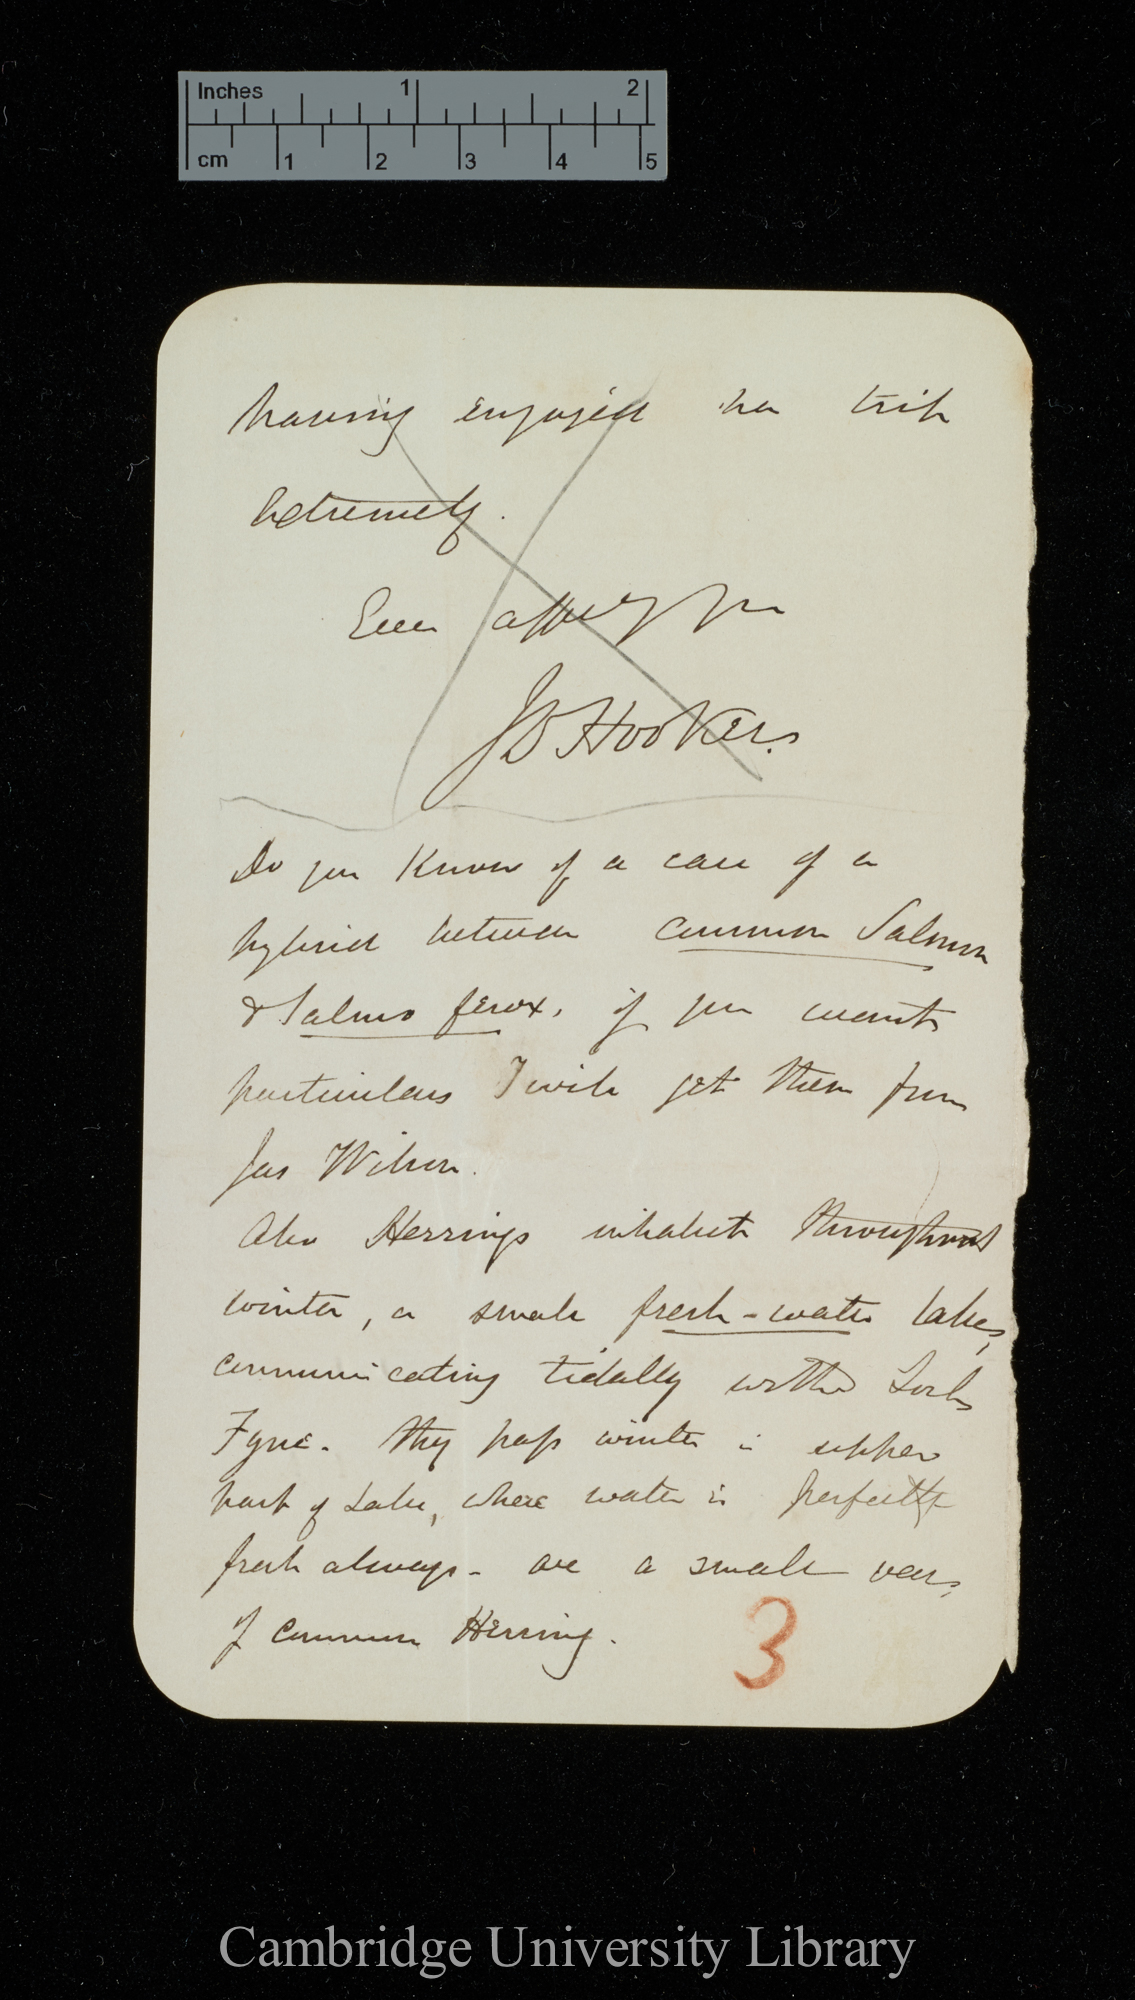 Inches 1 2
cm 1 2 3 4 5
having enjoyed her trip
extremely.
Ever affecly yrs
J D Hooker.
Do you know of a case of a
hybrid between common Salmon
& Salmo ferox, if you want
particulars I will get them from
Jas Wilson.
Also Herrings inhabit throughout
winter, a small fresh-water lake,
communicating tidally with Loch
Fyne. They pass winter in upper
part of Lake, where water is perfectly
fresh always- are a small var.
of common Herring.
3
Cambridge University Library